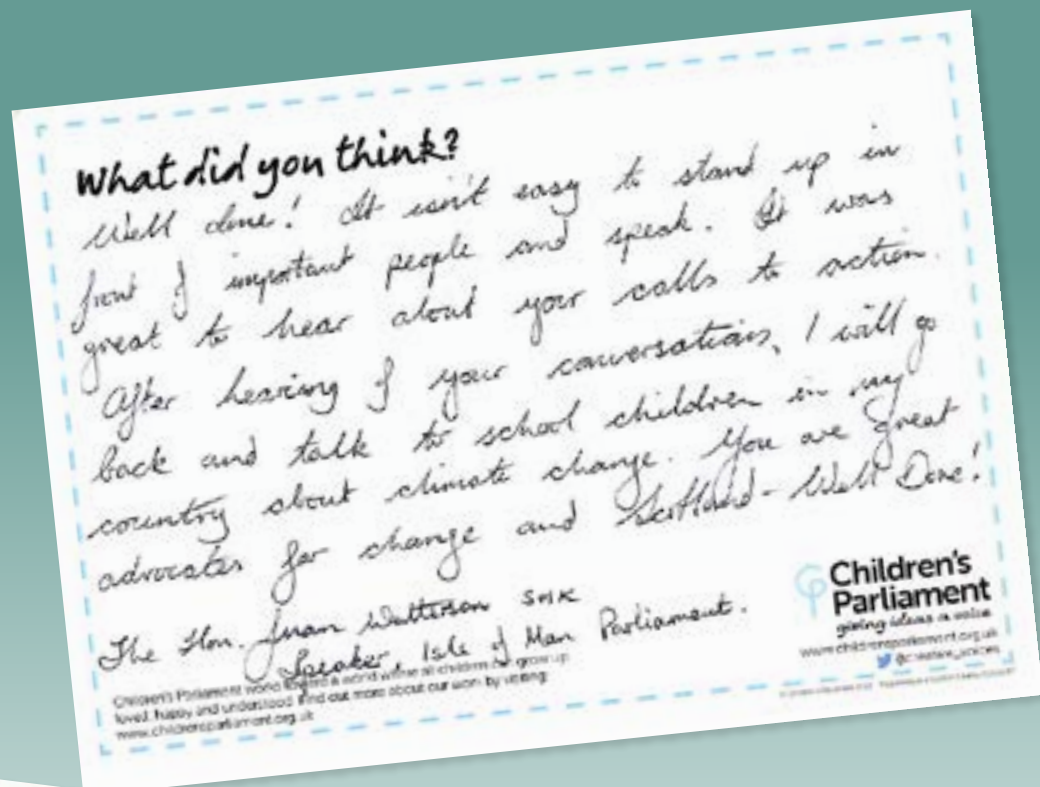 What did you think?
Well done! It isn't easy to stand up in
front of important people and speak. It was
great to hear about your calls to action.
After hearing of your conversations, I will go
back and talk to school children in my
country about climate change. You are great
advocates for change and Scotland - Well Done!
The Hon. Juan Watterson SHK
Speaker, Isle of Man Parliament.
Children's
Parliament
giving ideas a voice
www.childrensparliament.org.uk
Children's Parliament world a world where all children grow up
loved, happy and understood. Find out more about our work by visiting:
www.childrensparliament.org.uk